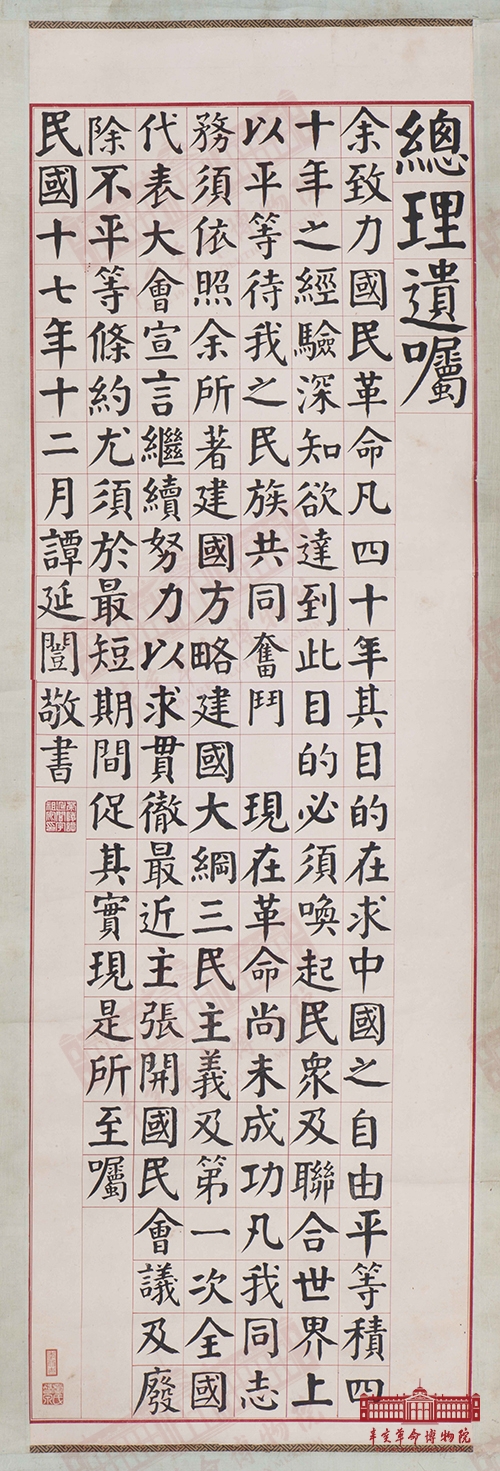 總理遺囑
余致力國民革命凡四十年其目的在求中國之自由平等積四
十年之經驗深知欲達到此目的必須喚起民衆及聯合世界上
以平等待我之民族共同奮鬥　現在革命尚未成功凡我同志
務須依照余所著建國方略建國大綱三民主義及第一次全國
代表大會宣言繼續努力以求貫徹最近主張開國民會議及廢
除不平等條約尤須於最短期間促其實現是所至囑
民國十七年十二月譚延闓敬書
辛亥革命博物院